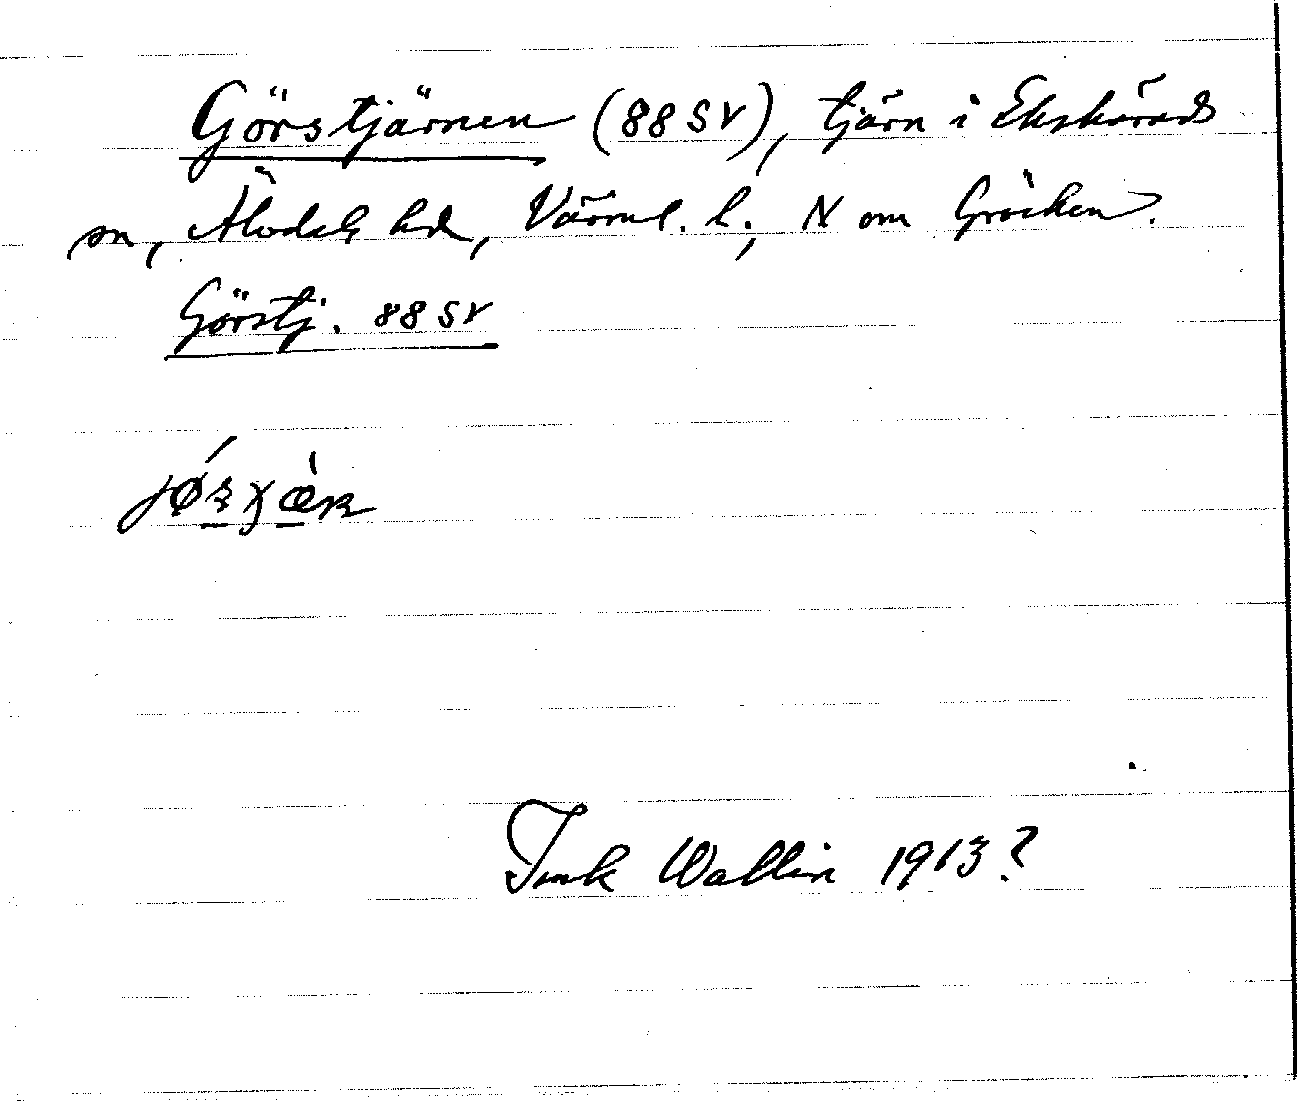 Görstjärnen (88 SV), tjärn i Ekshärads
sn, Älvdals hd, Värml. l.; N om Gröcken.
Görstj. 88 SV
Wallin 1913?